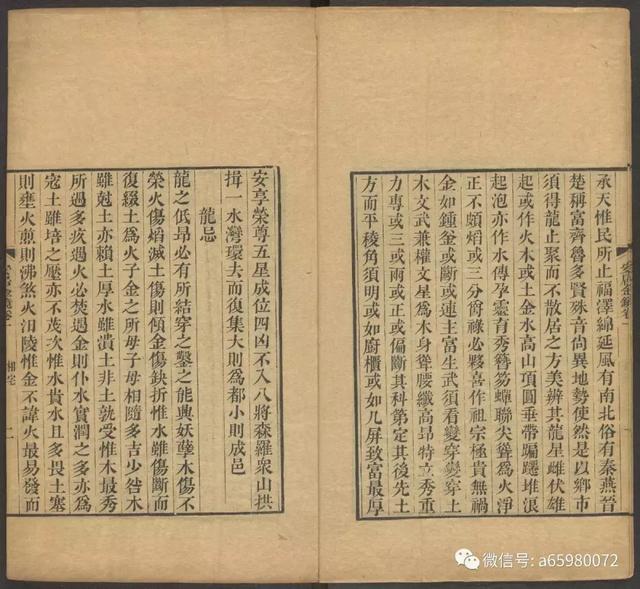 承天惟民所止福澤綿延風有南北俗有秦燕晉
楚稱富齊魯多賢殊音尚異地勢使然是以鄉市
須得龍止聚而不散居之方美辨其龍星雌伏雄
起或作火木或土金水高山頂圓垂帶騸躚堆浪
起泡亦作水傳孕靈育秀簪笏蟬聯尖聳爲火淨
正不頗熖或三分爵祿必夥喜作祖宗極貴無禍
金如鍾釜或斷或連主富生武須看變穿變穿上
木文武兼權文星爲木身聳腰纖高昂特立秀重
力專或三或兩或正或偏斷其科第定其後先土
方而平稜角須明或如廚櫃或如几屏致富最厚
安享榮尊五星成位四凶不入八將森羅衆山拱
揖一水灣環去而復集大則爲都小則成邑
龍忌
龍之低昻必有所結穿之鑿之能興妖孽木傷不
榮火傷熖滅土傷則傾金傷缺折惟水雖傷斷而
復綴土爲火子金之所母子母相隨多吉少咎木
雖尅土亦賴土厚水雖潰土非土孰受惟木最秀
所過多疚過火必焚過金則仆水實潤之多亦爲
寇土雖培之壓亦不茂次惟水貴水且多畏土塞
則壅火煎則沸煞火汨陵惟金不諱火最易發而
相宅
二
微信号: a65980072